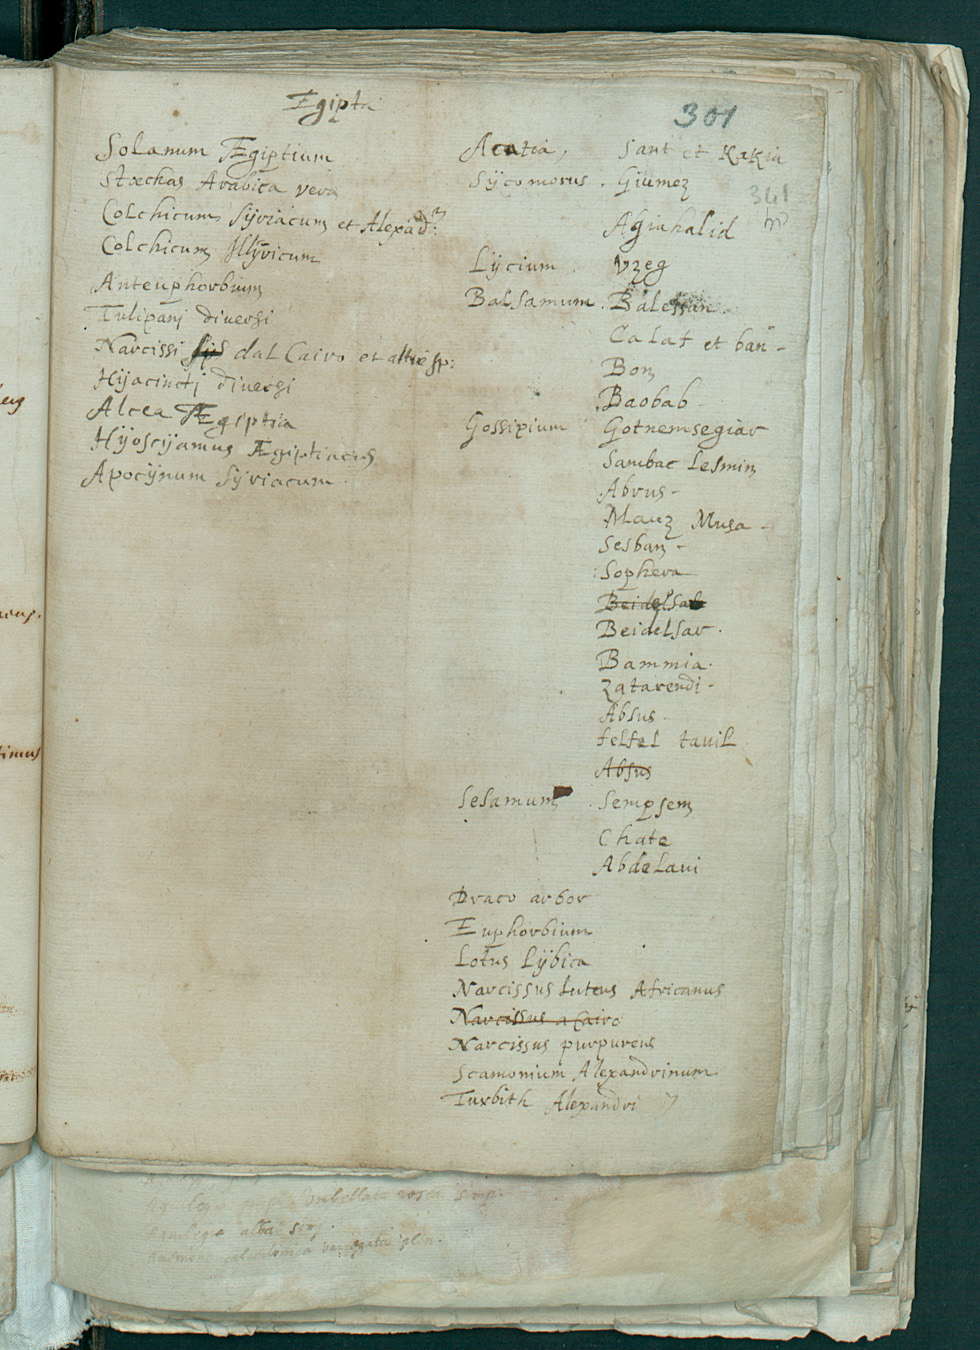 Egipta
301
Solanum Ægiptium
Stœchas Arabica vera
Colchicum Sÿriacum et Alexãd:
Colchicum Illÿricum
Anteuphorbium
Tulipanj diuersi
Narcissi dal Cairo et altre sp:
Hÿacinctj diuersi
Alcea Ægiptia
Hÿoscÿamus Ægiptiacus
Apocÿnum Sÿriacum.
Acatia, Sant et Kakia
Sÿcomorus. Giumez
341
Aginhalid
Lÿcium Vzeg
Balsamum. Balessan.
Calaf et ban -
Bon
Baobab
Gossipium Gotnemsegiar
Sambac Iesmin
Abrus -
Mauz Musa -
Sesban -
Sophera
Beidelsar
Beidelsar.
Bammia.
Zatarendi -
Absus -
felfel tauil
Absus
Sesamum Sempsem
Chate
Abdelaui
Draco arbor
Euphorbium
Lotus Lÿbica
Narcissus luteus Africanus
Narcissus a Cairo
Narcissus purpureus
Scamonium Alexandrinum
Turbith Alexandri
umbellata rosea simp.
Aquilegia alba
Anemone calcedonica variegata plen.
timus